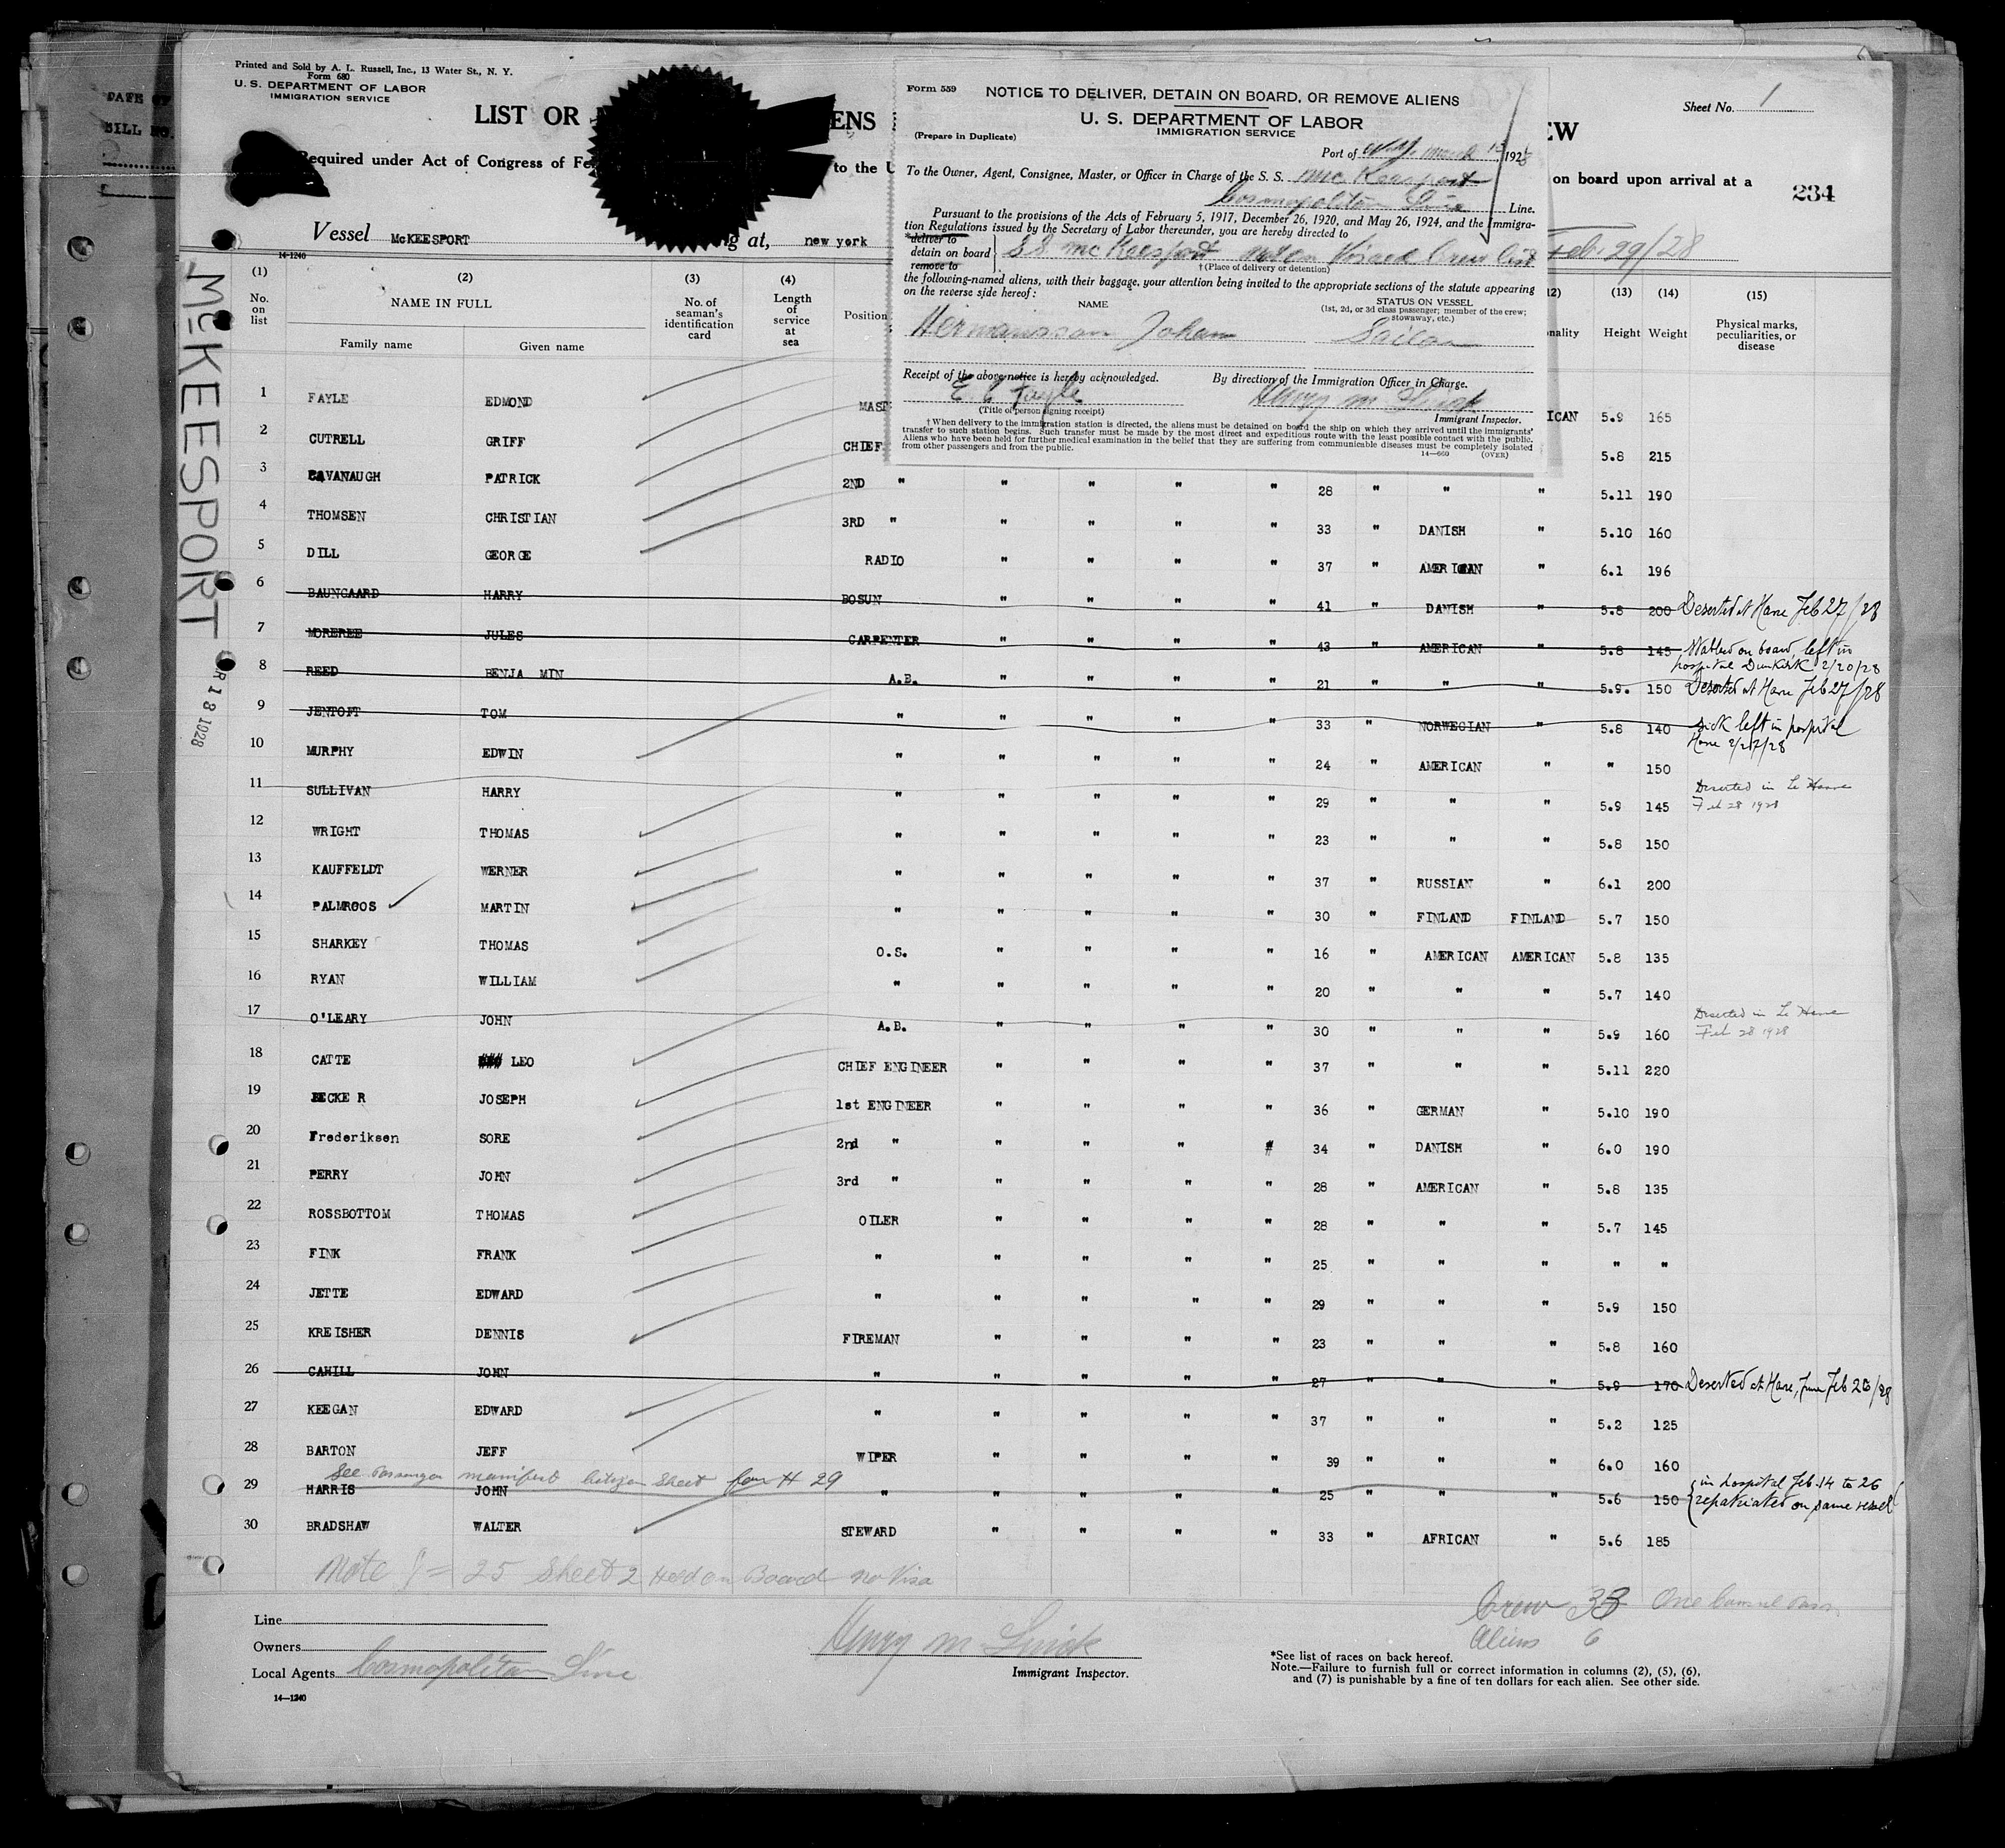 Printed and Sold by A. L. Russell, Inc., 13 Water St., N. Y.
Form 680
U. S. DEPARTMENT OF LABOR
IMMIGRATION SERVICE
LIST OR ENS EW
Sheet No. 1
Required under Act of Congress of Fe to the U on board upon arrival at a
234
Vessel McKEESPORT g at, new york Feb. 29/28
14-1240
Form 559
NOTICE TO DELIVER, DETAIN ON BOARD, OR REMOVE ALIENS
U. S. DEPARTMENT OF LABOR
IMMIGRATION SERVICE
(Prepare in Duplicate)
Port of N.Y. March 15, 1928
To the Owner, Agent, Consignee, Master, or Officer in Charge of the S. S. McKeesport
Cosmopolitan Line Line.
Pursuant to the provisions of the Acts of February 5, 1917, December 26, 1920, and May 26, 1924, and the Immigra-
tion Regulations issued by the Secretary of Labor thereunder, you are hereby directed to
deliver to
detain on board SS McKeesport not on Visaed Crew list
remove to
† (Place of delivery or detention)
the following-named aliens, with their baggage, your attention being invited to the appropriate sections of the statute appearing
on the reverse side hereof:
NAME STATUS ON VESSEL
(1st, 2d, or 3d class passenger; member of the crew; stowaway, etc.)
Hermansson Johan Sailor
Receipt of the above notice is hereby acknowledged. By direction of the Immigration Officer in Charge.
E. C. Fayle Henry M
(Title of person signing receipt) Immigrant Inspector.
† When delivery to the immigration station is directed, the aliens must be detained on board the ship on which they arrived until the immigrants'
transfer to such station begins. Such transfer must be made by the most direct and expeditious route with the least possible contact with the public.
Aliens who have been held for further medical examination in the belief that they are suffering from communicable diseases must be completely isolated
from other passengers and from the public.
14—660 (OVER)
(1) (2) (3) (4) 12) (13) (14) (15)
No. on list NAME IN FULL No. of seaman's identification card Length of service at sea Position nality Height Weight Physical marks, peculiarities, or disease
Family name Given name
McKEESPORT
R 18 1928
1 FAYLE EDMOND MAST ICAN 5.9 165
2 CUTRELL GRIFF CHIEF 5.8 215
3 CAVANAUGH PATRICK 2ND " " " " " 28 " " " 5.11 190
4 THOMSEN CHRISTIAN 3RD " " " " " 33 " DANISH " 5.10 160
5 DILL GEORGE RADIO " " " " 37 " AMERICAN " 6.1 196
6 BAUNGAARD HARRY BOSUN " " " " 41 " DANISH " 5.8 200 Deserted at Havre Feb 27/28
7 MOREREE JULES CARPENTER " " " " 43 " AMERICAN " 5.8 145 on board, left in
hospital Dunkirk 2/20/28
8 REED BENJA MIN A.B. " " " " 21 " " " 5.9. 150 Deserted at Havre Feb 27/28
9 JENTOFT TOM " " " " " 33 " NORWEGIAN " 5.8 140 Sick left in hospital
Havre 2/27/28
10 MURPHY EDWIN " " " " " 24 " AMERICAN " " 150
11 SULLIVAN HARRY " " " " " 29 " " " 5.9 145 Deserted in Le Havre
Feb 28 1928
12 WRIGHT THOMAS " " " " " 23 " " " 5.8 150
13 KAUFFELDT WERNER " " " " " 37 " RUSSIAN " 6.1 200
14 PALMROOS MARTIN " " " " " 30 " FINLAND FINLAND 5.7 150
15 SHARKEY THOMAS O.S. " " " " 16 " AMERICAN AMERICAN 5.8 135
16 RYAN WILLIAM " " " " " 20 " " " 5.7 140
17 O'LEARY JOHN A.B. " " " " 30 " " " 5.9 160 Deserted in Le Havre
Feb 28 1928
18 CATTE ### LEO CHIEF ENGINEER " " " " 37 " " " 5.11 220
19 BECKE R JOSEPH 1st ENGINEER " " " " 36 " GERMAN " 5.10 190
20 Frederiksen SORE 2nd " " " " # 34 " DANISH " 6.0 190
21 PERRY JOHN 3rd " " " " " 28 " AMERICAN " 5.8 135
22 ROSSBOTTOM THOMAS OILER " " " " 28 " " " 5.7 145
23 FINK FRANK " " " " " 25 " " " " "
24 JETTE EDWARD " " " " " 29 " " " 5.9 150
25 KREISHER DENNIS FIREMAN " " " " 23 " " " 5.8 160
26 CAHILL JOHN " " " " " 27 " " " 5.9 170 Deserted at Havre, Feb 26/28
27 KEEGAN EDWARD " " " " " 37 " " " 5.2 125
28 BARTON JEFF WIPER " " " " 39 " " " 6.0 160
See Passenger manifest citizen sheet for # 29
29 HARRIS JOHN " " " " " 25 " " " 5.6 150 in hospital Feb. 14 to 26
repatriated on same vessel
30 BRADSHAW WALTER STEWARD " " " " 33 " AFRICAN " 5.6 185
Note = 25 Sheet 2 Held on Board no Visa
Crew 33 One
Aliens 6
Line
Owners
Local Agents Cosmopolitan Line
Henry M
Immigrant Inspector.
*See list of races on back hereof.
Note.—Failure to furnish full or correct information in columns (2), (5), (6),
and (7) is punishable by a fine of ten dollars for each alien. See other side.
14—1240